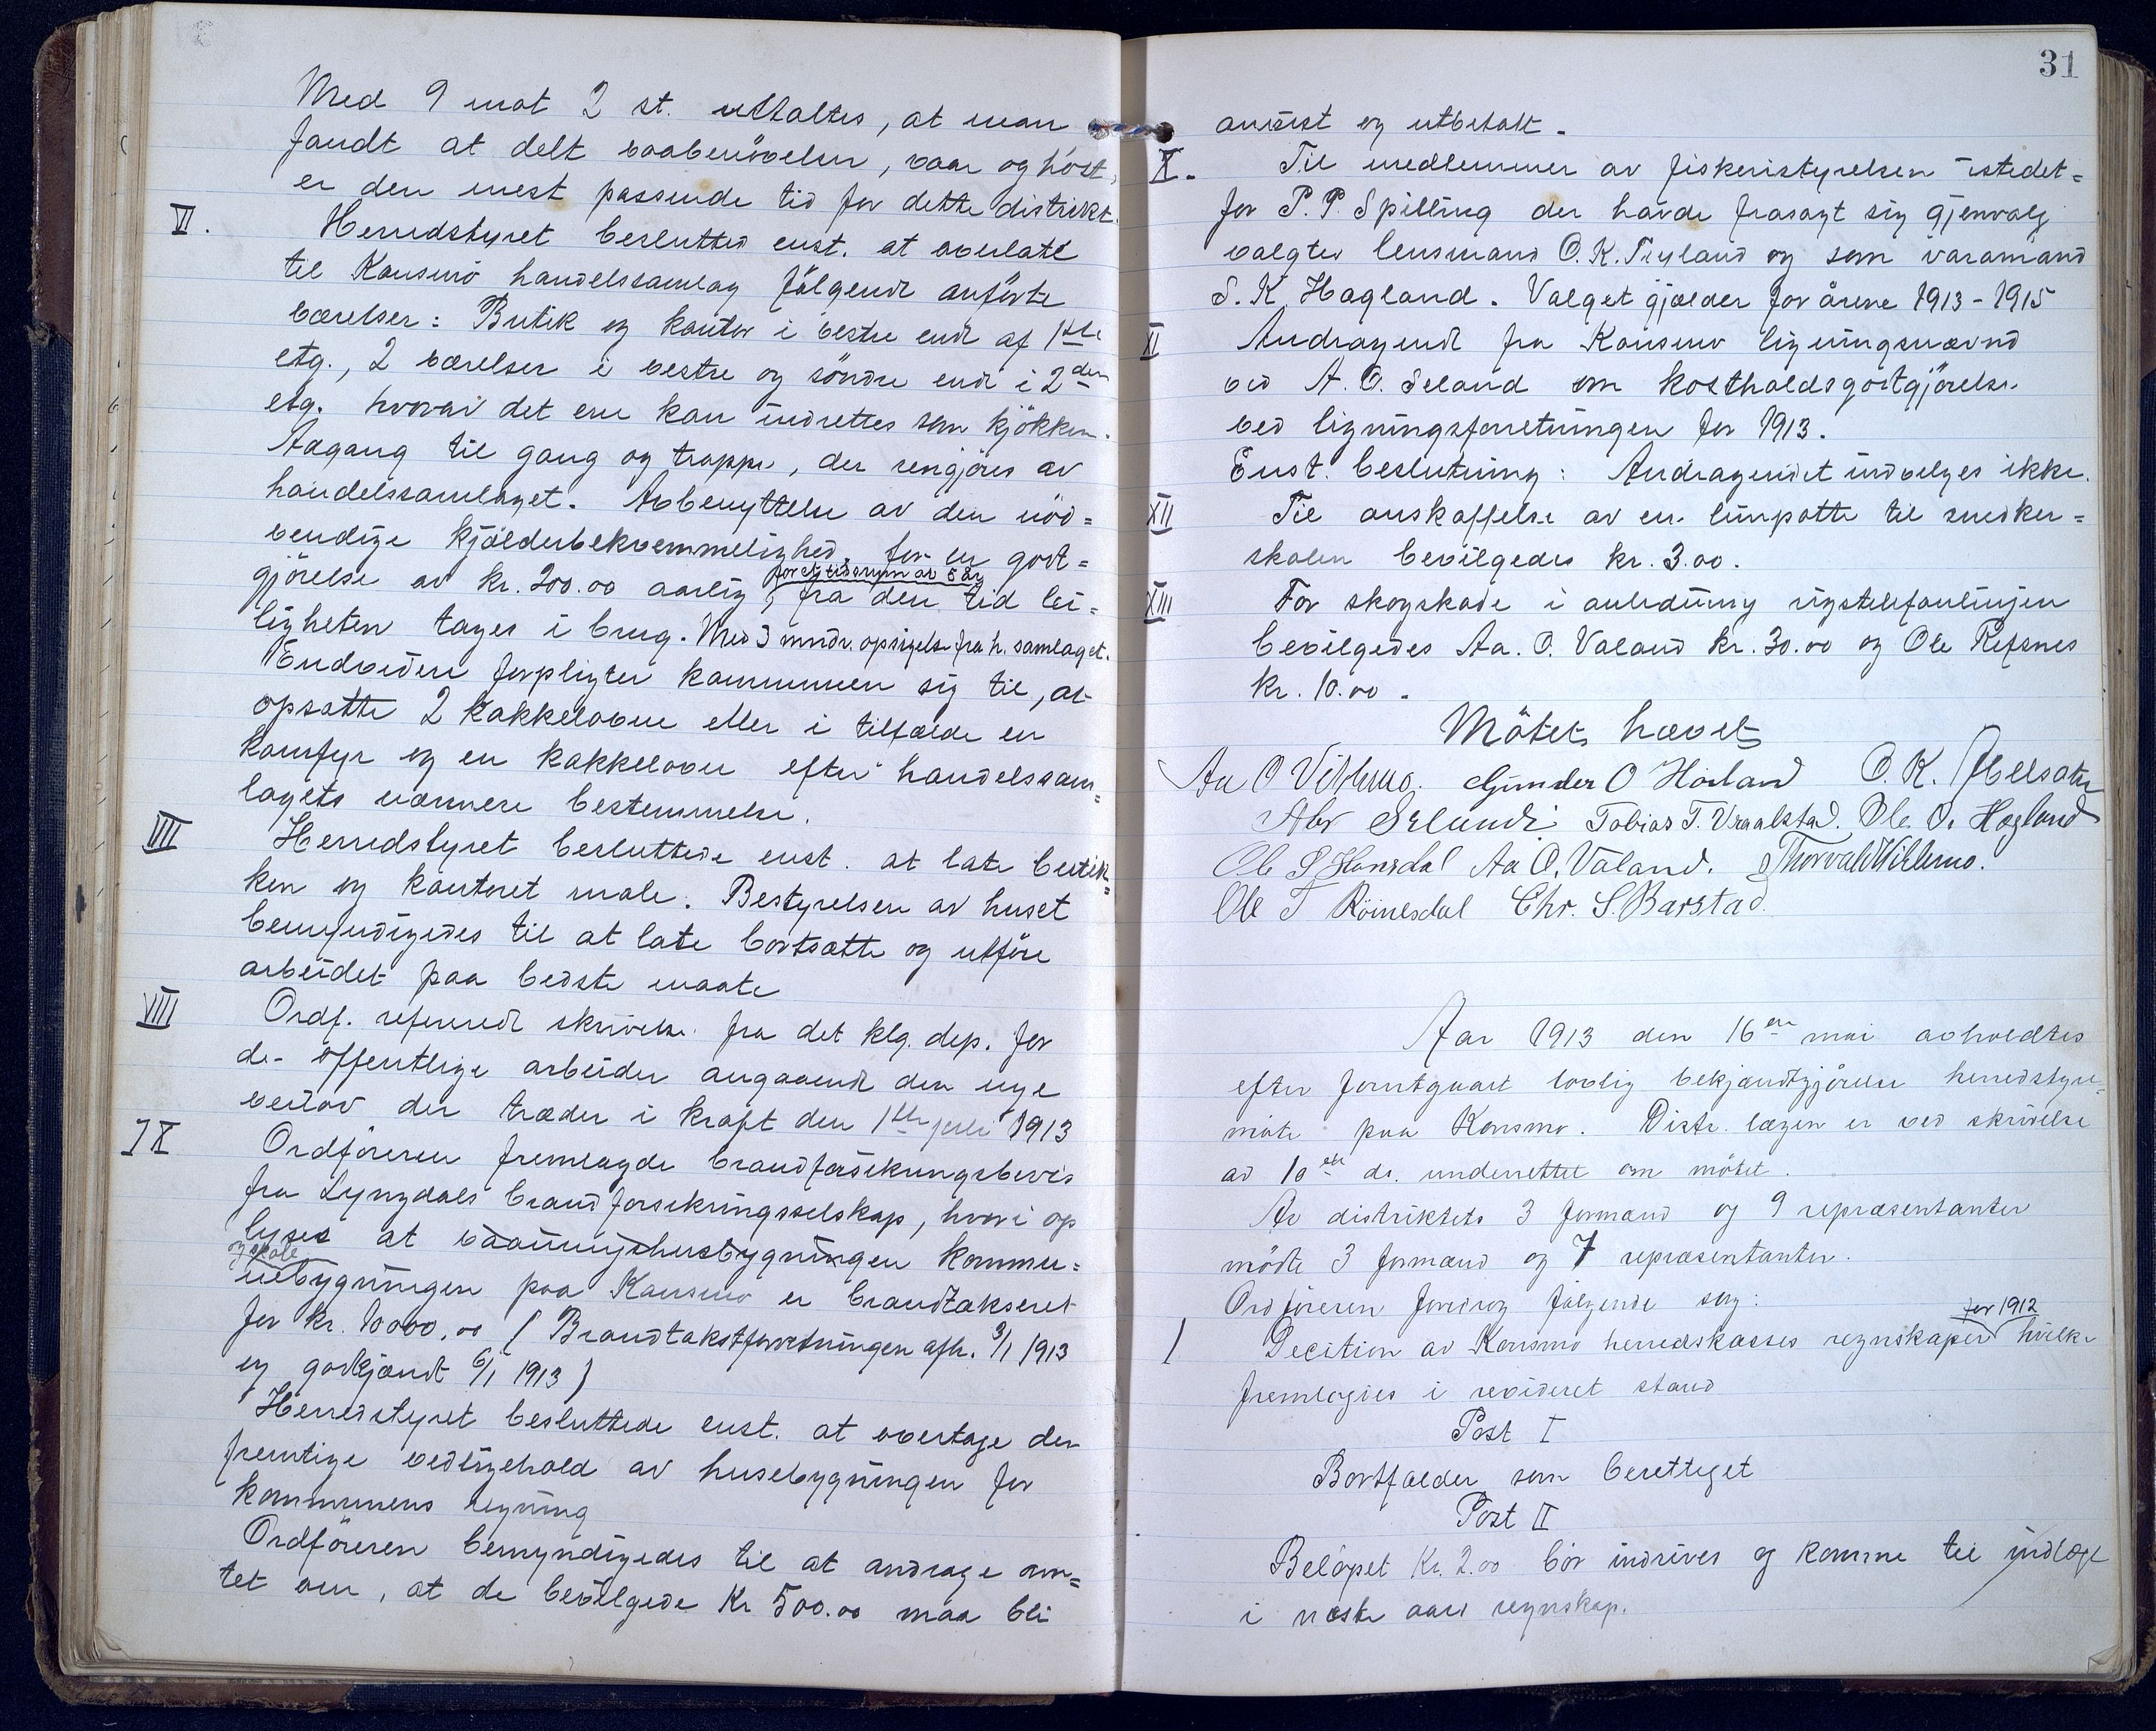 Med 9 mot 2 st. uttaltes, at man
fandt at delt vaabenövelse, vaar og höst,
er den mest passende tid for dette distrikt.
VI. Herredstyret beslutted enst. at overlate
til Konsmo handelssamlag fölgende anförte
værelser: Butik og kontor i vestre ende af 1ste
etg., 2 værelser i vestre og söndre ende i 2den
etg. hvorav det ene kan indrettes som kjökken.
Adgang til gang og trappe, der rengjöres av
handelssamlaget. Avbenyttelse av den nöd=
vendige kjælderbekvemmelighed, for en godt=
gjörelse av kr. 200.00 aarlig, for et tidsrum av 5 år, fra den tid lei=
ligheten tages i brug. Med 3 mndr. opsigelse fra h. samlaget.
Endvidere forpligter kommunen sig til, at
opsætte 2 kakkelovne eller i tilfælde en
komfyr og en kakkelovn efter handelssam=
lagets nærmere bestemmelse.
VII Herredstyret besluttede enst. at late butik=
ken og kontoret male. Bestyrelsen av huset
bemyndigedes til at late bortsætte og utföre
arbeidet paa bedste maate
VIII Ordf. refererede skrivelse fra det klg. dep. for
de offentlige arbeider angaaende den nye
veilov der træder i kraft den 1ste juli 1913
IX Ordföreren fremlagde brandforsikringsbevis
fra Lyngdals brandforsikringsselskap, hvori op
lyses at vaaningshusbygningen kommu=
og skole
nebygningen paa Konsmo er brandtakseret
for kr. 10000,00 (Brandtakstforretningen afh. 3/1 1913
og godkjendt 6/1 1913)
Herredstyret besluttede enst. at overtage den
fremtige vedligehold av husebygningen for
kommunens regning
Ordföreren bemyndigedes til at andrage am=
tet om, at de bevilgede Kr 500.00 maa bli
31
anvist og utbetalt.
X. Til medlemmer av fiskeristyrelsen istedet=
for P. P. Spilling der havde frasagt sig gjenvalg
valgtes lensmand O. K. Tryland og som varamand
S. K. Hagland. Valget gjælder for årene 1913-1915
XI Andragende fra Konsmo ligningsnævnd
ved A. O. Seland om kostholdsgodtgjörelse
ved ligningsforretningen for 1913.
Enst. beslutning: Andragendet indvilges ikke.
XII Til anskaffelse av en limpotte til snedker=
skolen bevilgedes kr. 3.00.
XIII For skogskade i anledning rigstelefonlinjen
bevilgedes Aa. O. Valand kr. 30.00 og Ole Refsnes
kr. 10.00.
Mötet hævet
Aa O Vihlmo. Gunder O Höiland O. K.
Abr Selund Tobias T. Vraalstad. Ole O. Hagland
Ole S Homsdal Aa O. Valand. Thorvald Wihlmo.
Ole T Röinesdal Chr. S. Barstad.
Aar 1913 den 16de mai avholdtes
efter forutgaaet lovlig bekjændtgjörelse herredstyre=
möte paa Konsmo. Distr. lægen er ved skrivelse
av 10de ds. underrettet om mötet.
Av distriktets 3 formænd og 9 repræsentanter
mödte 3 formænd og 7 repræsentanter.
Ordföreren foredrog fölgende sag:
1 Decition av Konsmo herredskasses regnskaper for 1912 hvilke
fremlagdes i revideret stand
Post I
Bortfalder som berettiget
Post II
Belöpet Kr. 2.00 bör indrives og komme til indtægt
i næste aars regnskap.